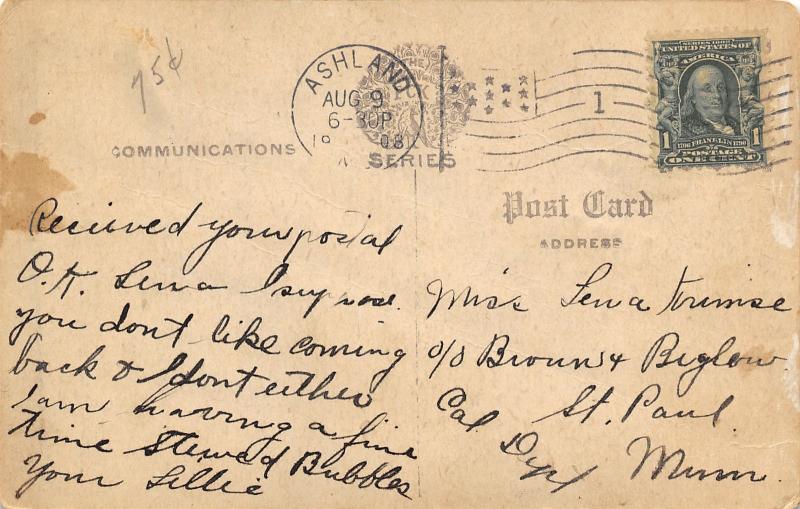 75¢
ASHLAND
AUG 9
6-30P
1908
THE
SERIES
1
SERIES 1902
UNITED STATES OF
AMERICA
1 1
1706 FRANKLIN 1790
POSTAGE
ONE CENT
COMMUNICATIONS
Post Card
ADDRESS
Received your postal
O.K. Lena I suppose
you dont like coming
back & I dont either
I am having a fine
time stewed Bubbles
Your Lillie
Miss Lena
c/o Brown & Biglow
St. Paul
Cal Dept Minn.